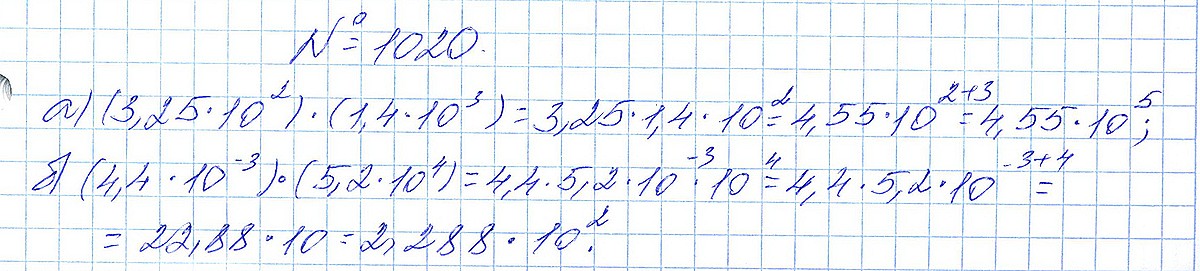 № 1020.
а) (3,25·10²)·(1,4·10³)=3,25·1,4·10²=4,55·10²⁺³=4,55·10⁵;
б) (4,4·10⁻³)·(5,2·10⁴)=4,4·5,2·10⁻³·10⁴=4,4·5,2·10⁻³⁺⁴=
=22,88·10=2,288·10².